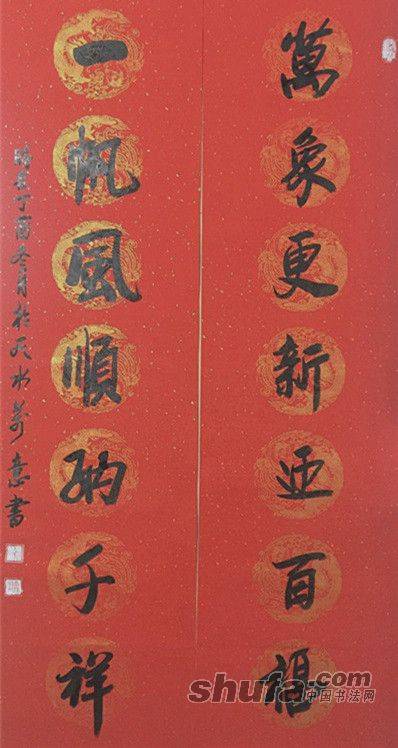 萬象更新迎百福
一帆風順納千祥
丁酉冬月於天水
書
shufa.com
中国书法网